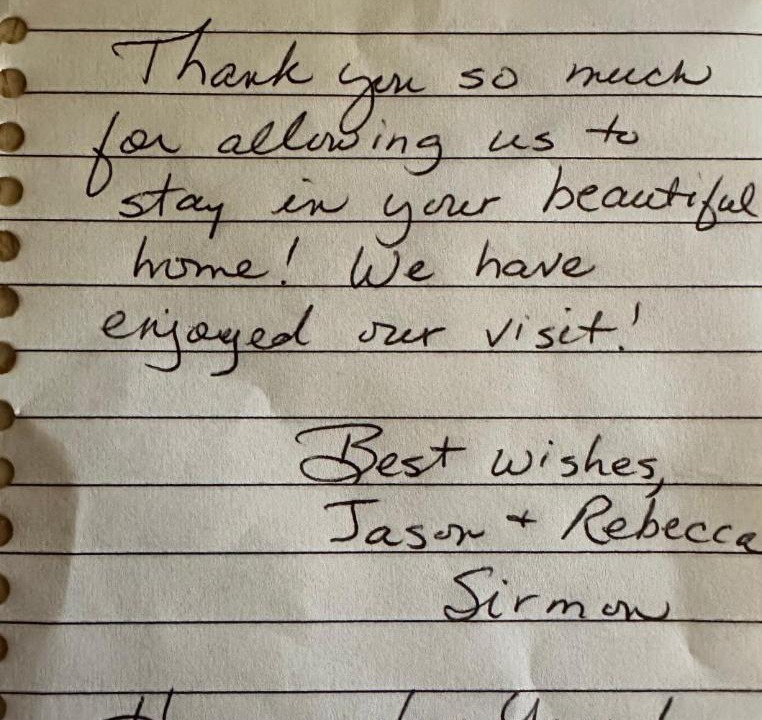 Thank you so much
for allowing us to
stay in your beautiful
home! We have
enjoyed our visit!
Best wishes,
Jason + Rebecca
Sirmon